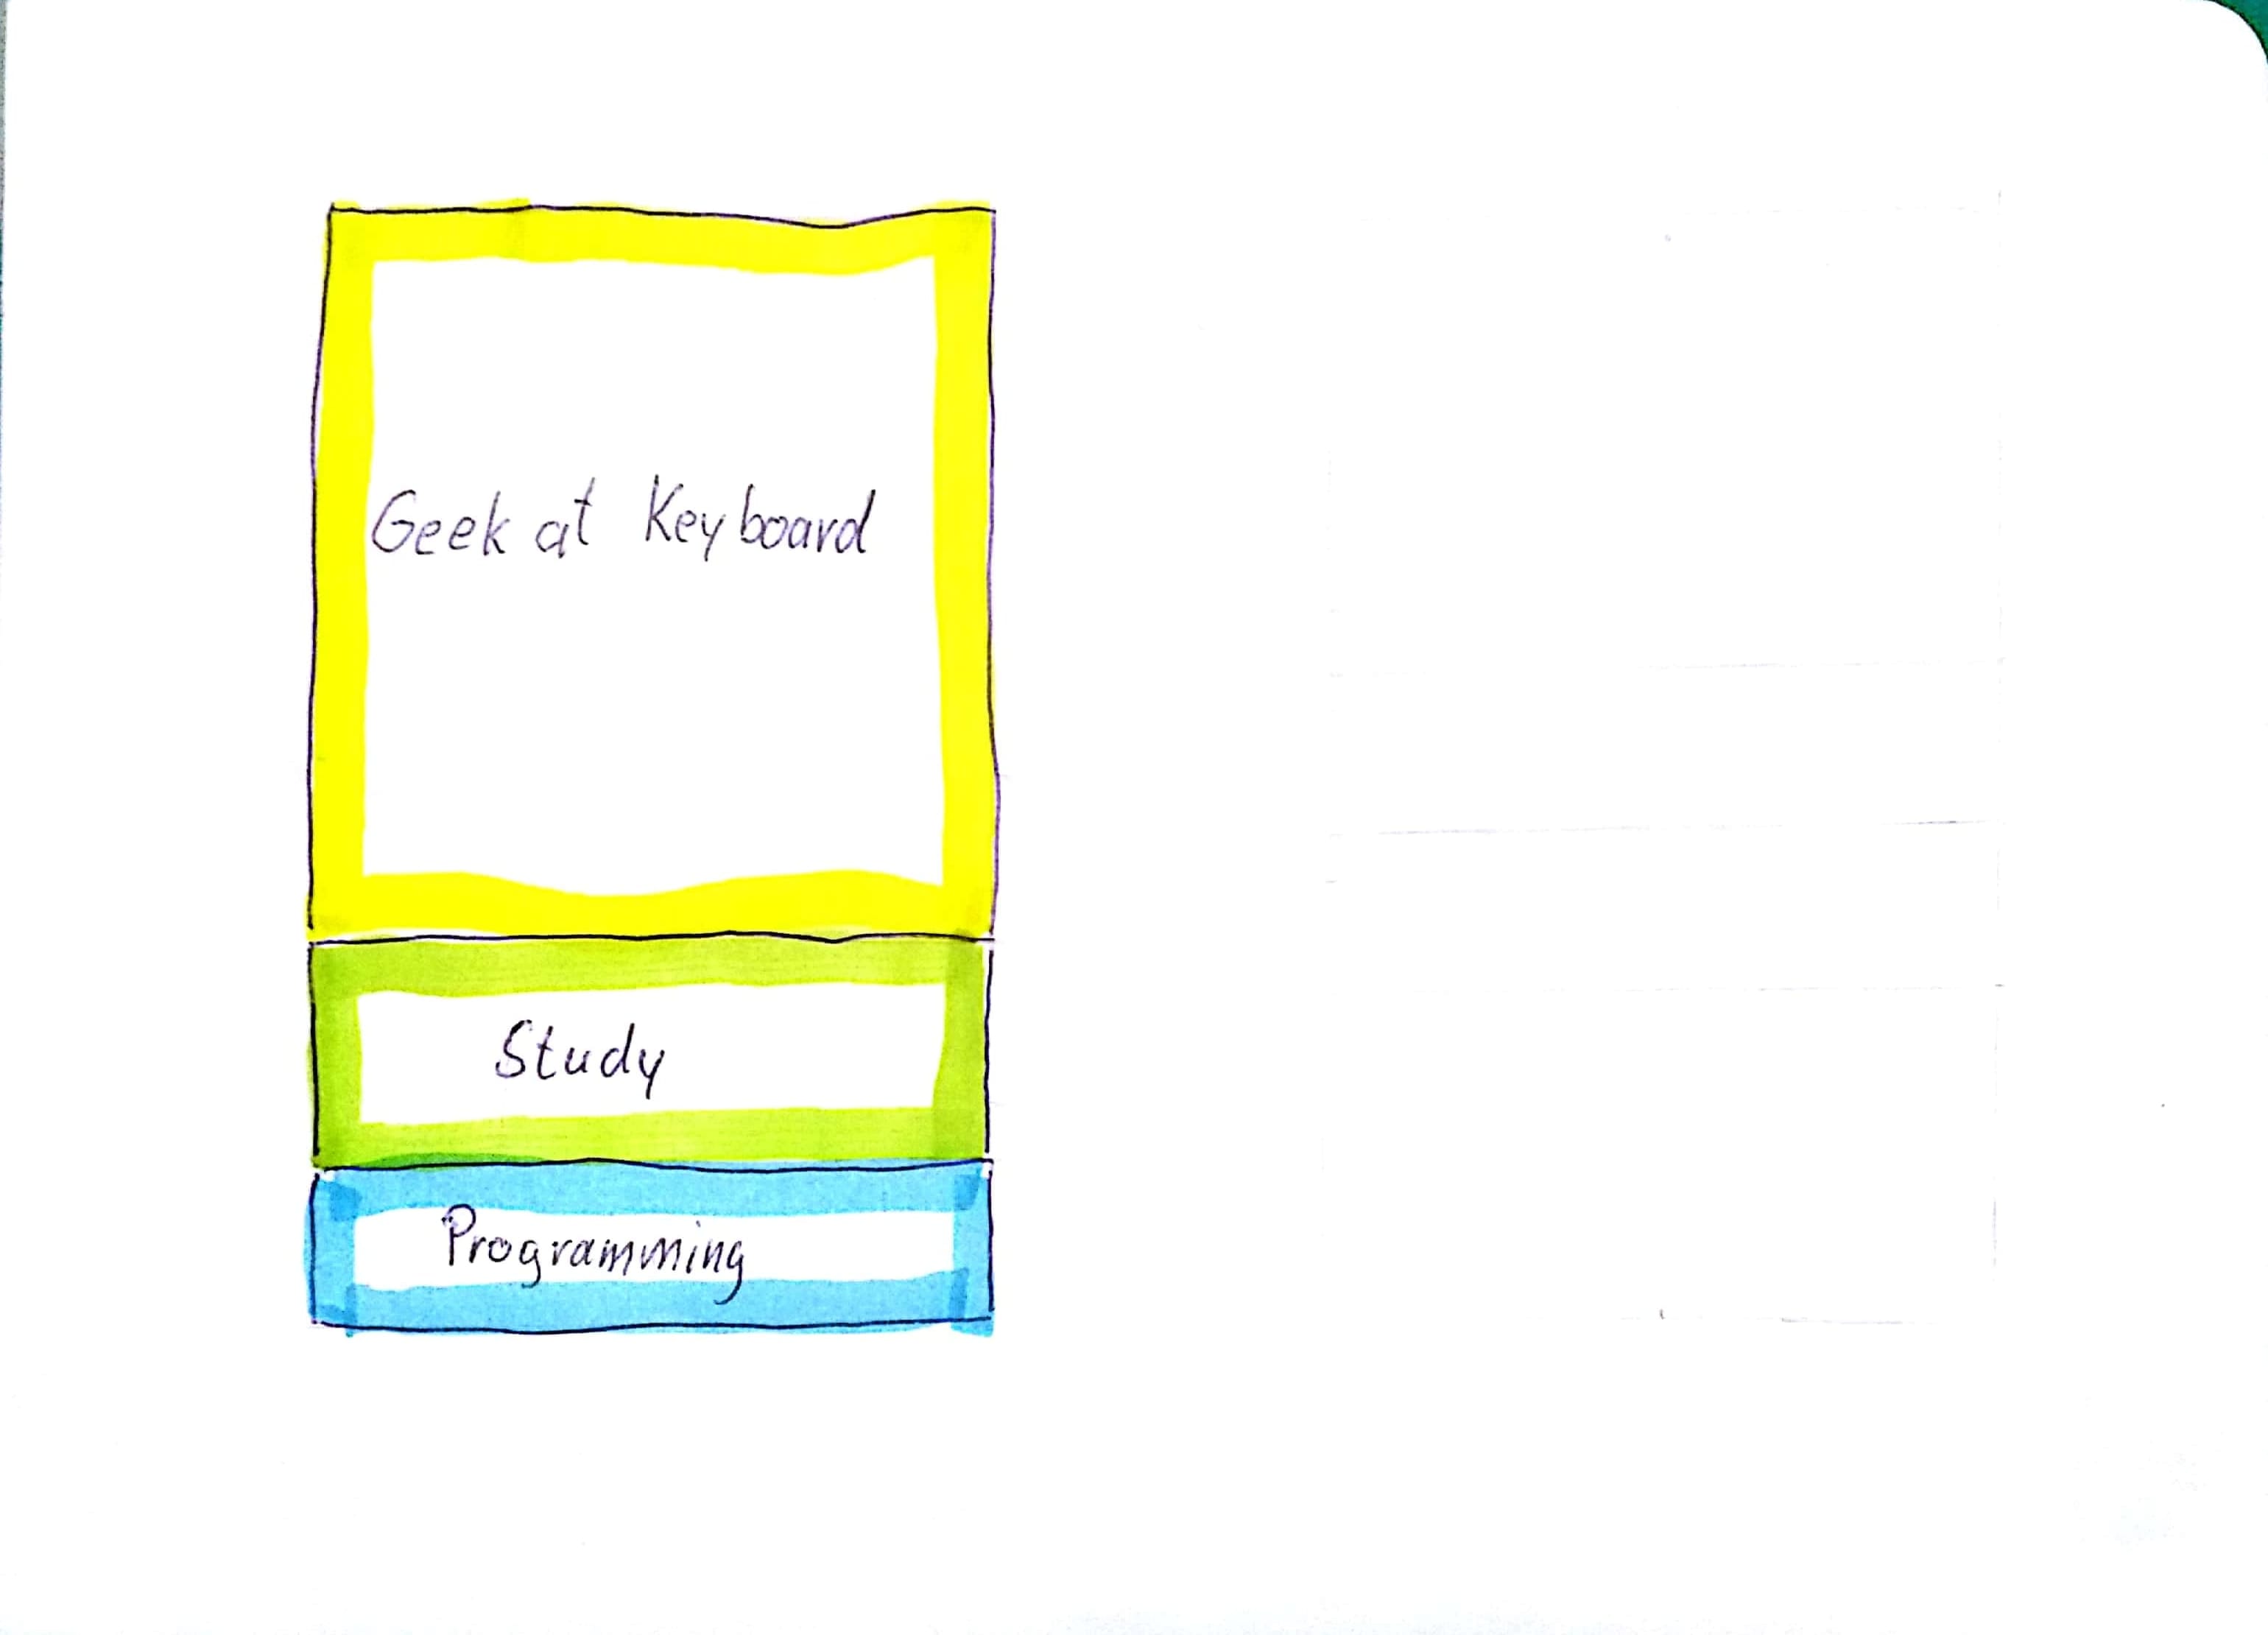 Geek at Keyboard
Study
Programming